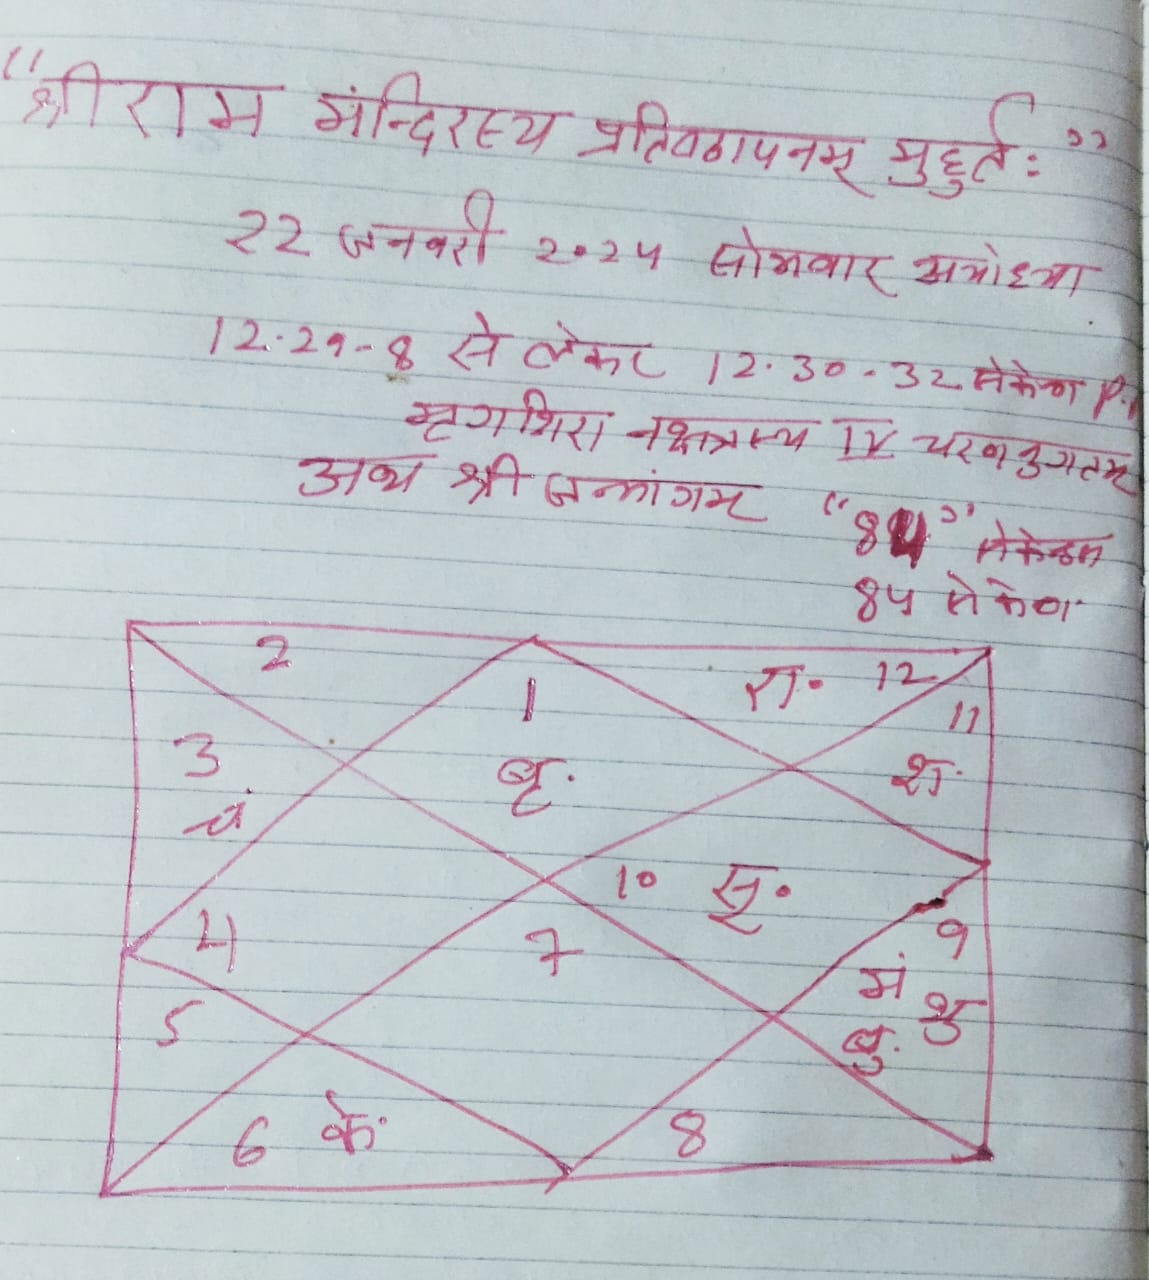 "श्री राम मंन्दिरस्य प्रतिष्ठापनम् मुहुर्त: "
22 जनवरी 2024 सोमवार अयोध्या
12.29-8 से लेकर 12.30-32 सेकेण्ड P.
मृगशिरा नक्षत्रस्य IV चरणनुगतम्
अथ श्री जन्मांगम "84" सेकेण्डस
84 सेकेण्ड
2
1
रा. 12
11
3
बृ.
श.
चं
10 सू.
4
7
9
मं शु
5
बु.
6 के.
8